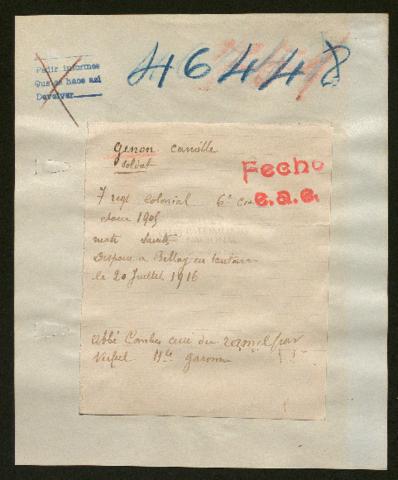 Pedir informes
Que se hace así
Devolver
46448
Genon Camille
Soldat
Fecho
e.a.e.
7 regt Colonial 6e Com
classe 1905
PATRIMONIO
NACIONAL
Disparu a Belloy en Santerre
le 20 Juillet 1916
Abbé Combes curé du Ramel par
Verfeil Hte Garonne